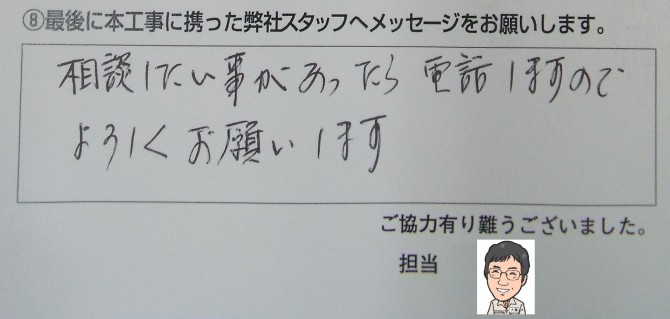 ⑧最後に本工事に携った弊社スタッフへメッセージをお願いします。
相談したい事があったら電話しますので
よろしくお願いします
ご協力有り難うございました。
担当